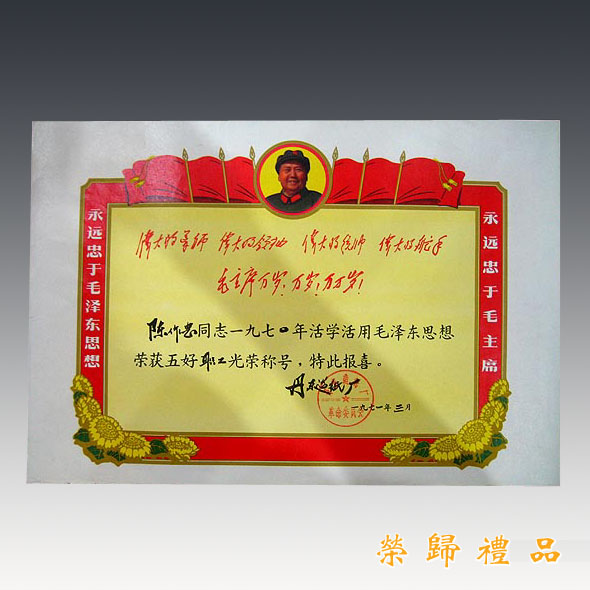 永远忠于毛泽东思想
永远忠于毛主席
伟大的导师 伟大的领袖 伟大的统帅 伟大的舵手
毛主席万岁!万岁!万万岁!
陈作忠同志一九七〇年活学活用毛泽东思想
荣获五好职工光荣称号,特此报喜。
丹东造纸厂
革命委员会
一九七一年三月
榮歸禮品